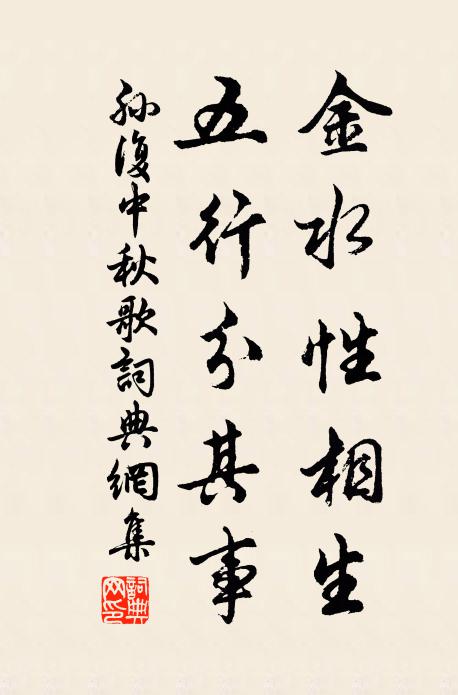 金水性相生
五行分其事
孙復中秋歌詞典網集
詞典
网印